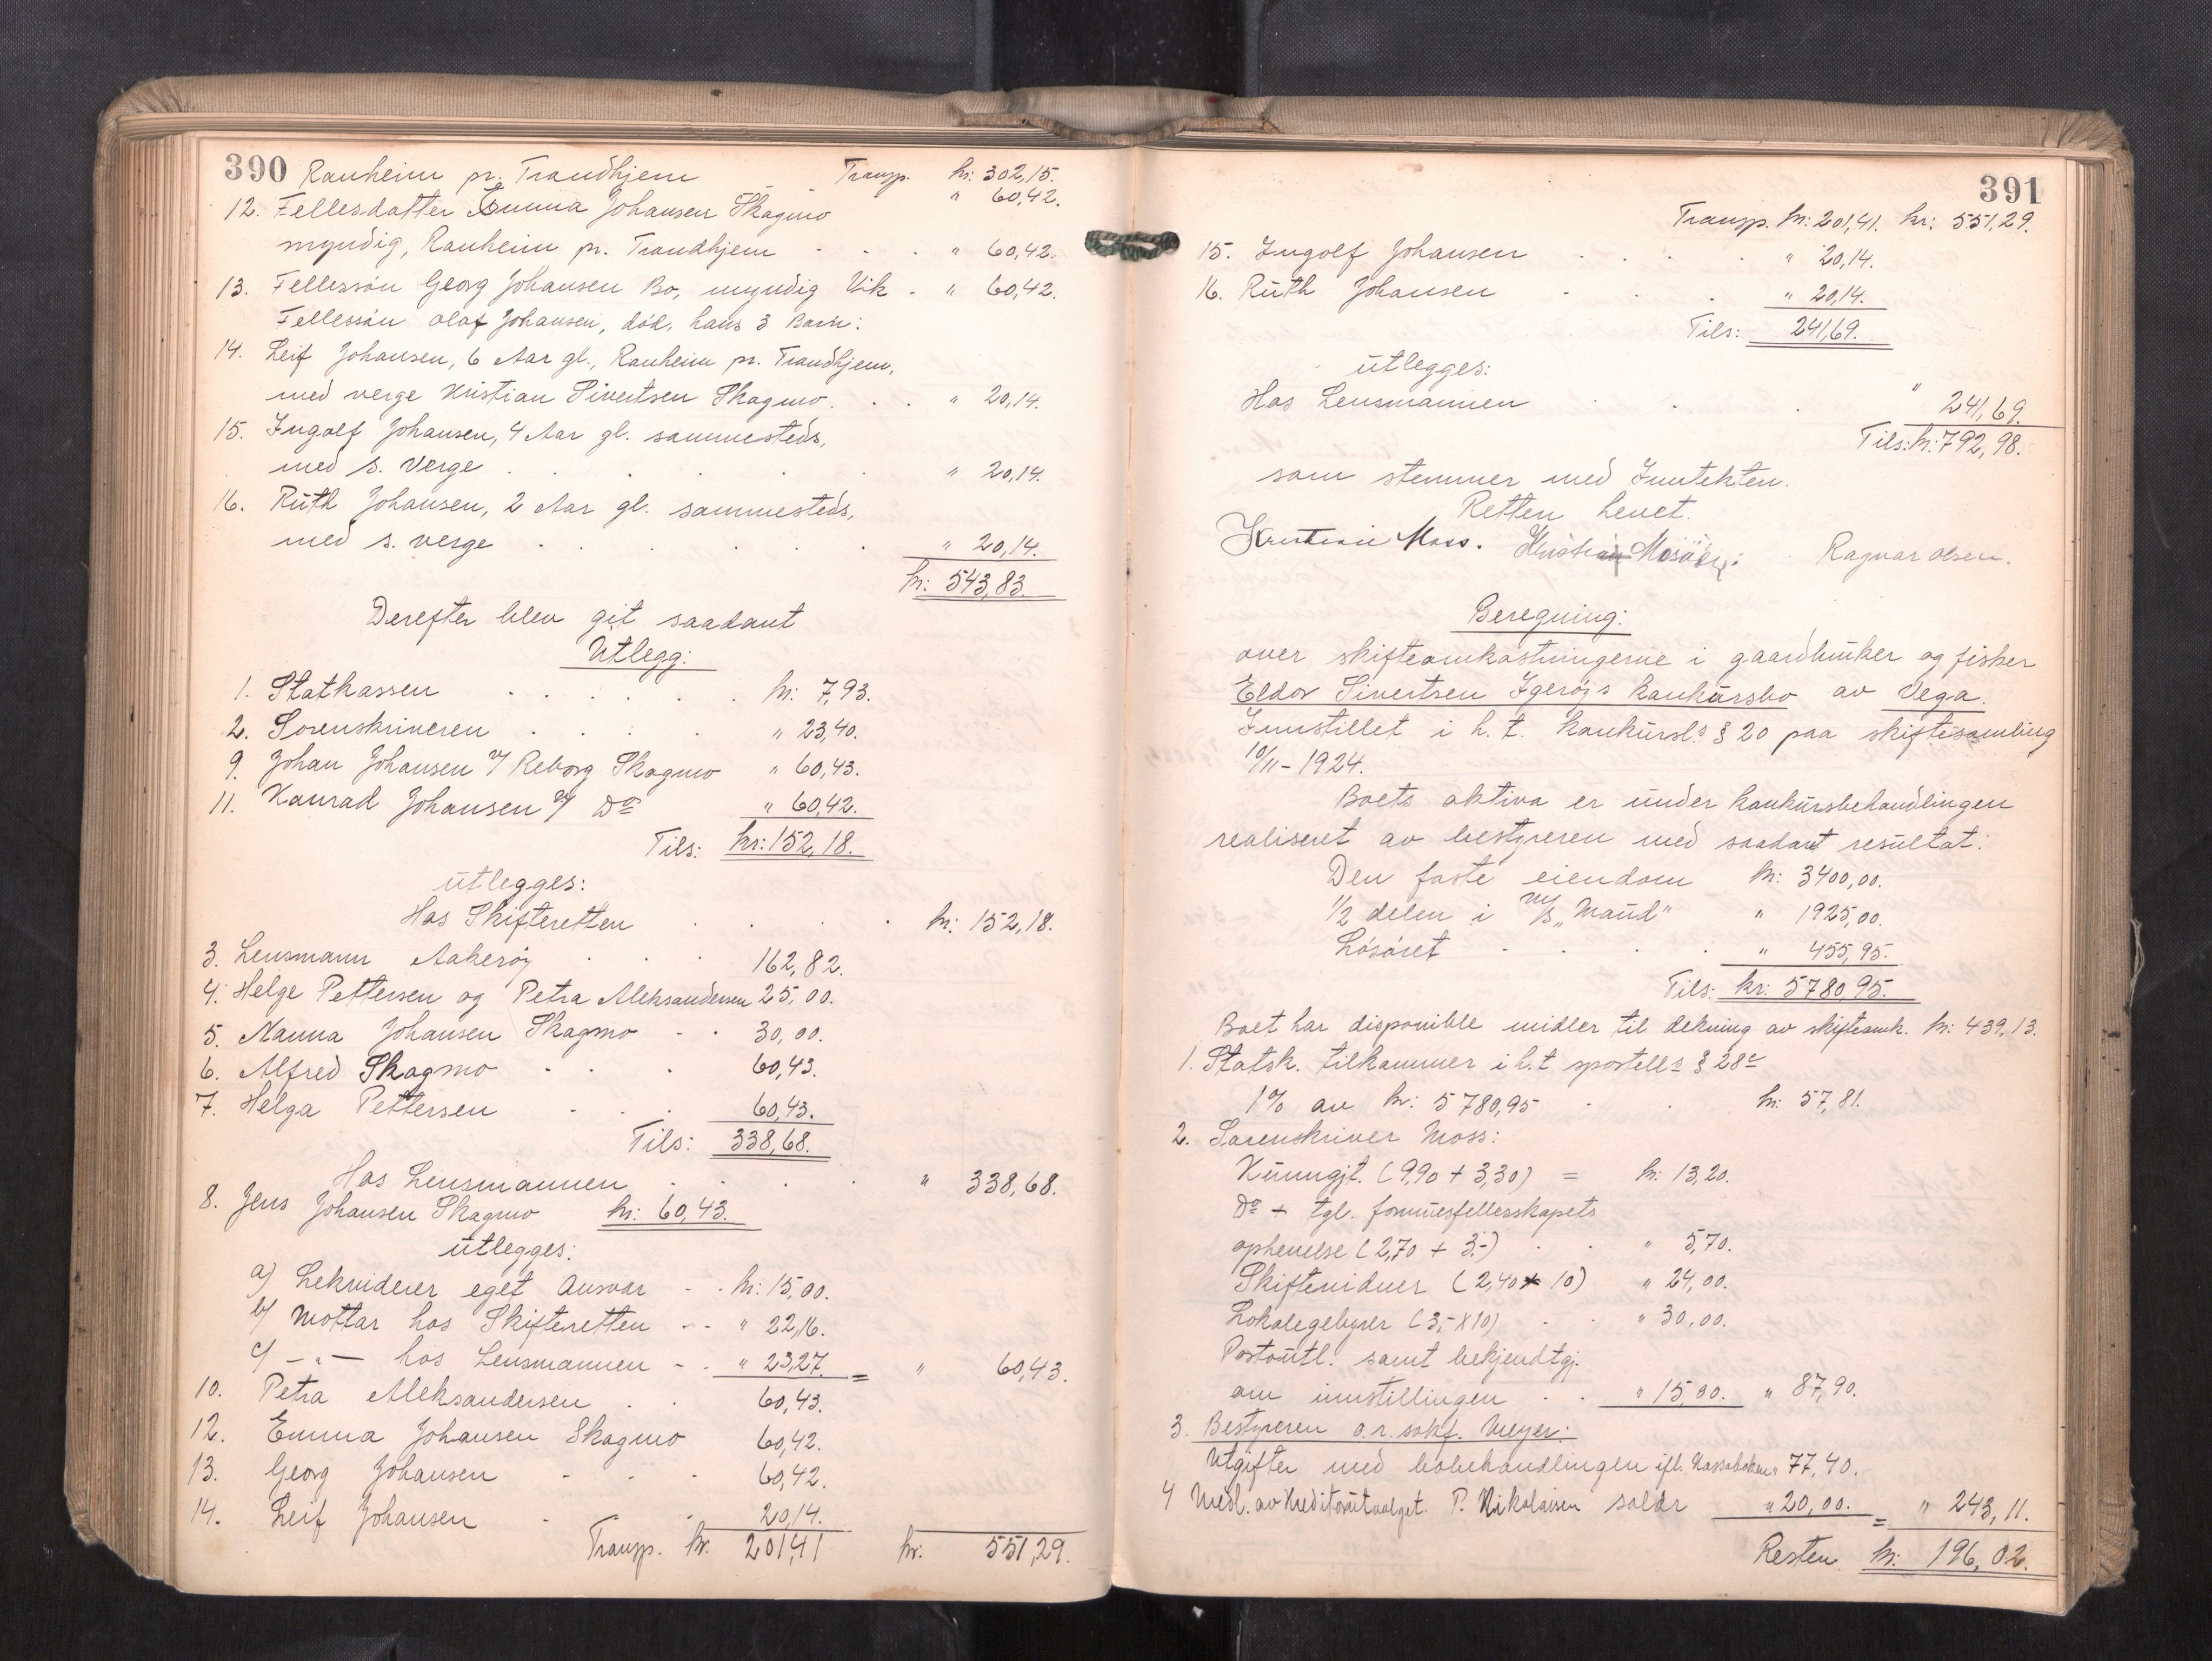 390 Ranheim pr. Trandhjem - - Transp. kr: 302,15.
" 60,42.
12. Fellesdatter Emma Johansen Skagmo
myndig, Ranheim pr. Trandhjem . . . " 60,42.
13. Fellessøn Georg Johansen Bo, myndig Vik . " 60,42.
Fellessøn Olaf Johansen, død, hans 3 Barn:
14. Leif Johansen, 6 Aar gl., Ranheim pr. Trandhjem,
med verge Kristian Sivertsen Skagmo. . . " 20,14.
15. Ingolf Johansen, 4 Aar gl. sammesteds,
med s. verge . . . . . " 20,14.
16. Ruth Johansen, 2 Aar gl. sammesteds,
med s. verge . . . . . " 20,14.
kr: 543,83.
Derefter blev git saadant
Utlegg:
1. Statkassen . . . . . . kr: 7,93.
2. Sorenskriveren . . . . " 23,40.
9. Johan Johansen v/ Reborg Skagmo " 60,43.
11. Konrad Johansen v/ Do " 60,42.
Tils: kr: 152,18.
utlegges:
Hos Skifteretten . . . . kr: 152,18.
3. Lensmann Aakerøy . . . 162,82.
4. Helge Pettersen og Petra Aleksandersen 25,00.
5. Nanna Johansen Skagmo - . 30,00.
6. Alfred Skagmo . . . 60,43.
7. Helga Pettersen . . . 60,43.
Tils: 338,68.
Hos Lensmannen . . . . " 338,68.
8. Jens Johansen Skagmo kr: 60,43.
utlegges:
a) Lekviderer eget Ansvar - . kr: 15,00.
b) Mottar hos Skifteretten - - " 22,16.
c) — " — hos Lensmannen - . " 23,27. = " 60,43.
10. Petra Aleksandersen . . 60,43.
12. Emma Johansen Skagmo 60,42.
13. Georg Johansen - . . 60,42.
14. Leif Johansen . . 20,14.
Transp. kr. 201,41 kr. 551,29.
391
Transp. kr: 201,41. kr: 551,29.
15. Ingolf Johansen . . . . " 20,14.
16. Ruth Johansen . . . " 20,14.
Tils: 241,69.
utlegges:
Hos Lensmannen . . . " 241,69.
Tils: kr: 792,98.
som stemmer med Inntekten.
Retten hevet.
Kristian Moss. Kristian Ragnar Olsen.
Beregning:
over skifteomkostningerne i gaardbruker og fisker
Eldor Sivertsen Igerøjs konkursbo av Vega.
Innstillet i h. t. konkursl.s § 20 paa skiftesamling
10/11-1924.
Boets aktiva er under konkursbehandlingen
realiseret av bestyreren med saadant resultat:
Den faste eiendom kr: 3400,00.
1/2 delen i m/s "Maud" " 1925,00.
Løsøret . . . . " 455,95.
Tils: kr: 5780,95.
Boet har disponible midler til dekning av skifteomk. kr: 439,13.
1. Statsk. tilkommer i h.t sportell.s § 28c
1% av kr: 5780,95 . . kr: 57,81.
2. Sorenskriver Moss:
Kunngjt. (9,90 + 3,30) = kr: 13,20.
Do + tgl. formuesfellesskapets
ophevelse (2,70 + 3.-) . . " 5,70.
Skiftevidner (2,40 x 10) " 24,00.
Lokalegebyrer (3,- X 10) . . " 30,00.
Portoutl. samt bekjendtgj.
om innstillingen . . " 15,00. " 87,90.
3. Bestyreren o.r.sakf. Meyer:
Utgifter med bobehandlingen ifl. Kasseboken " 77,40.
4 Medl. av Kreditorutvalget. P. Nikolaisen salær " 20,00. = " 243,11.
Resten kr: 196,02.